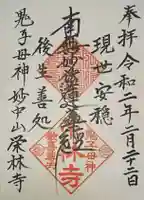 奉拝令和二年二月二十二日
現世安穏
南無妙法蓮華経
後生善処
鬼子母神妙中山栄林寺
鬼子母神
林寺